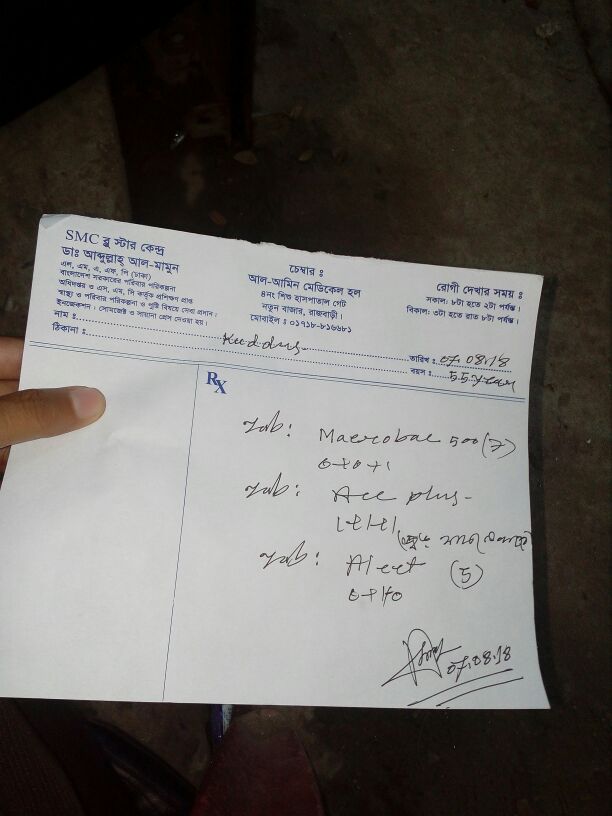 SMC ব্লু স্টার কেন্দ্র
ডাঃ আব্দুল্লাহ্ আল-মামুন
এল, এম, এ, এফ, পি (ঢাকা)
বাংলাদেশ সরকারের পরিবার পরিকল্পনা
অধিদপ্তর ও এস, এম, সি কর্তৃক প্রশিক্ষণ প্রাপ্ত
স্বাস্থ্য ও পরিবার পরিকল্পনা ও পুষ্টি বিষয়ে সেবা প্রদান।
ইনজেকশন। সোমাজেক্ট ও সায়ানা প্রেস দেওয়া হয়।
চেম্বার ঃ
আল-আমিন মেডিকেল হল
৪নং শিশু হাসপাতাল গেট
নতুন বাজার, রাজবাড়ী।
মোবাইল ঃ ০১৭১৮-৮১৬৬৮১
রোগী দেখার সময় ঃ
সকাল: ৮টা হতে ২টা পর্যন্ত।
বিকাল: ৩টা হতে রাত ৮টা পর্যন্ত।
নাম ঃ Kuddus তারিখ ঃ 07.08.18
ঠিকানা ঃ বয়স ঃ 55 year
RX
Tab: Macrobac 500 (7)
0+0+1
Tab: Ace plus-
1+1+1
Tab: Alect (5)
0+1+0
07.08.18